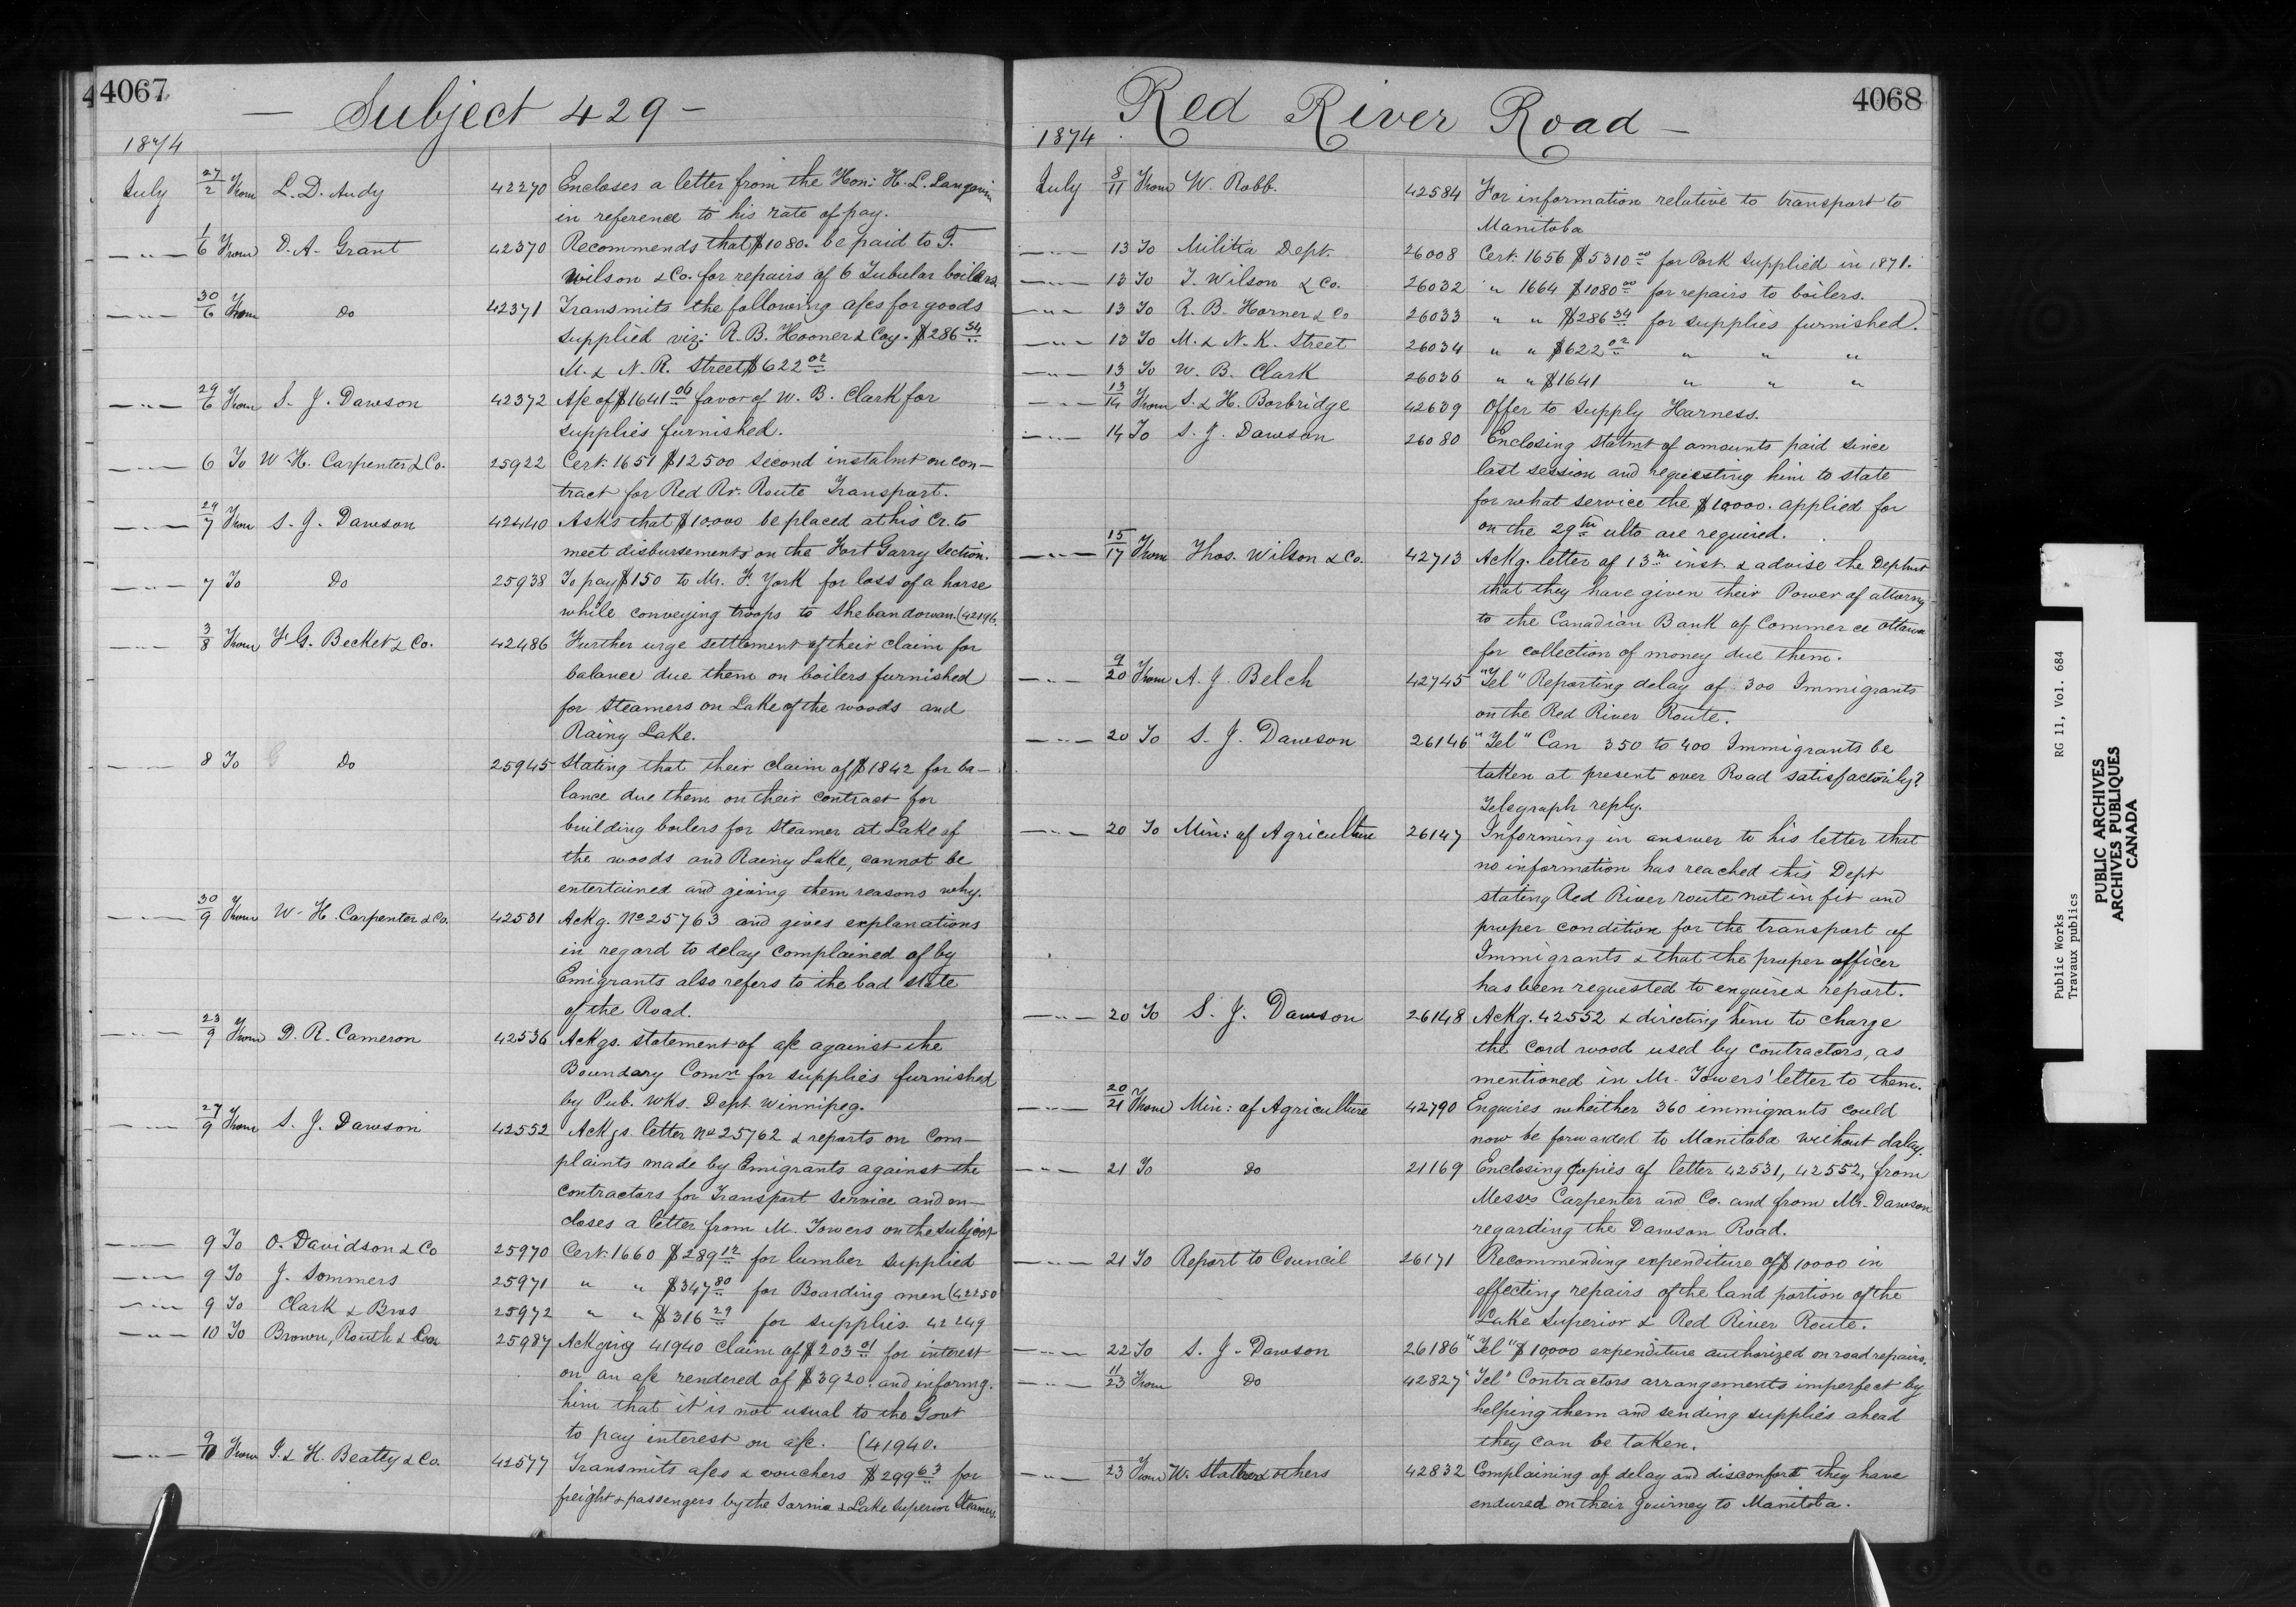 4067
Subject 429 —
1874
July 27/2 From L. D. Audy 42270 Encloses a letter from the Hon: H. L. Langevin
in reference to his rate of pay.
— " — 1/6 From D. A. Grant 42370 Recommends that $1080. be paid to T.
Wilson & Co. for repairs of 6 Tubular boilers.
— " — 30/6 From do 42371 Transmits the following a/cs for goods
supplied viz: R. B. Hooner & Coy. $286 34
M. & N. R. Street $622 02
— " — 29/6 From S. J. Dawson 42372 A/c of $1641 06 favor of W. B. Clark for
supplies furnished.
— " — 6 To W. H. Carpenter & Co. 25922 Cert: 1651 $12500 second instalmt on con-
tract for Red Rr. Route Transport.
— " — 29/7 From S. J. Dawson 42440 Asks that $10,000 be placed at his Cr. to
meet disbursements on the Fort Garry Section.
— " — 7 To Do 25938 To pay $150 to Mr. F. York for loss of a horse
while conveying troops to Shebandowan. (42196.
— " — 3/8 From F. G. Becket & Co. 42486 Further urge settlement of their claim for
balance due them on boilers furnished
for steamers on Lake of the woods and
Rainy Lake.
— " — 8 To Do 25945 Stating that their claim of $1842 for ba-
lance due them on their contract for
building boilers for steamer at Lake of
the woods and Rainy Lake, cannot be
entertained and giving them reasons why.
— " — 30/9 From W. H. Carpenter & Co. 42531 Ackg. No 25763 and gives explanations
in regard to delay complained of by
Emigrants also refers to the bad state
of the Road.
— " — 23/9 From D. R. Cameron 42536 Ackgs. statement of a/c against the
Boundary Comn for supplies furnished
by Pub. Wks. Dept Winnipeg.
— " — 27/9 From S. J. Dawson 42552 Ackgs. letter No 25762 & reports on Com-
plaints made by Emigrants against the
contractors for Transport service and en-
closes a letter from M. Towers on the subject
— " — 9 To O. Davidson & Co 25970 Cert: 1660 $289 12 for lumber supplied
— " — 9 To J. Sommers 25971 " " $347 80 for Boarding men (42250
— " — 9 To Clark & Bros 25972 " " $316 29 for supplies. 42249
— " — 10 To Brown, Routh & 25987 Ackging 41940 claim of $203 01 for interest
on an a/c rendered of $3920. and informg.
him that it is not usual to the Govt
to pay interest on a/c. (41940.
— " — 9/10 From J. & H. Beatty & Co. 42577 Transmits a/cs & vouchers $299 63 for
freight & passengers by the Sarnia & Lake Superior Steamers.
Red River Road —
4068
1874
July 8/11 From W. Robb. 42584 For information relative to transport to
Manitoba
— " — 13 To Militia Dept. 26008 Cert: 1656 $5310 00 for Pork supplied in 1871.
— " — 13 To T. Wilson & Co. 26032 " 1664 $1080 00 for repairs to boilers.
— " — 13 To R. B. Horner & Co 26033 " " $286 34 for supplies furnished.
— " — 13 To M. & N. K. Street 26034 " " $622 02 " " "
— " — 13 To W. B. Clark 26036 " " $1641 " " "
— " — 13/14 From S. & H. Borbridge 42639 Offer to supply Harness.
— " — 14 To S. J. Dawson 26080 Enclosing statmt of amounts paid since
last session and requesting him to state
for what service the $10000. applied for
on the 29th ulto are required.
— " — 15/17 From Thos. Wilson & Co. 42713 Ackg. letter of 13th inst. & advise the Deptmt
that they have given their Power of attorny
to the Canadian Bank of Commerce Ottawa
for collection of money due them.
— " — 9/20 From A. J. Belch 42745 "Tel" Reporting delay of 300 Immigrants
on the Red River Route.
— " — 20 To S. J. Dawson 26146 "Tel" Can 350 to 400 Immigrants be
taken at present over Road satisfactorily?
Telegraph reply.
— " — 20 To Min: of Agriculture 26147 Informing in answer to his letter that
no information has reached this Dept
stating Red River route not in fit and
proper condition for the transport of
Immigrants & that the proper officer
has been requested to enquire & report.
— " — 20 To S. J. Dawson 26148 Ackg. 42552 & directing him to charge
the cord wood used by contractors, as
mentioned in Mr. Towers' letter to them.
— " — 20/21 From Min: of Agriculture 42790 Enquires wheither 360 immigrants could
now be forwarded to Manitoba without delay.
— " — 21 To do 21169 Enclosing copies of letter 42531, 42552, from
Messrs Carpenter and Co. and from Mr. Dawson
regarding the Dawson Road.
— " — 21 To Report to Council 26171 Recommending expenditure of $10000 in
effecting repairs of the land portion of the
Lake Superior & Red River Route.
— " — 22 To S. J. Dawson 26186 "Tel" $10,000 expenditure authorized on road repairs.
— " — 11/23 From Do 42827 "Tel" Contractors arrangements imperfect by
helping them and sending supplies ahead
they can be taken.
— " — 23 From W. & others 42832 Complaining of delay and disconfort they have
endured on their journey to Manitoba.
Public Works RG 11, Vol. 684
Travaux publics
PUBLIC ARCHIVES
ARCHIVES PUBLIQUES
CANADA